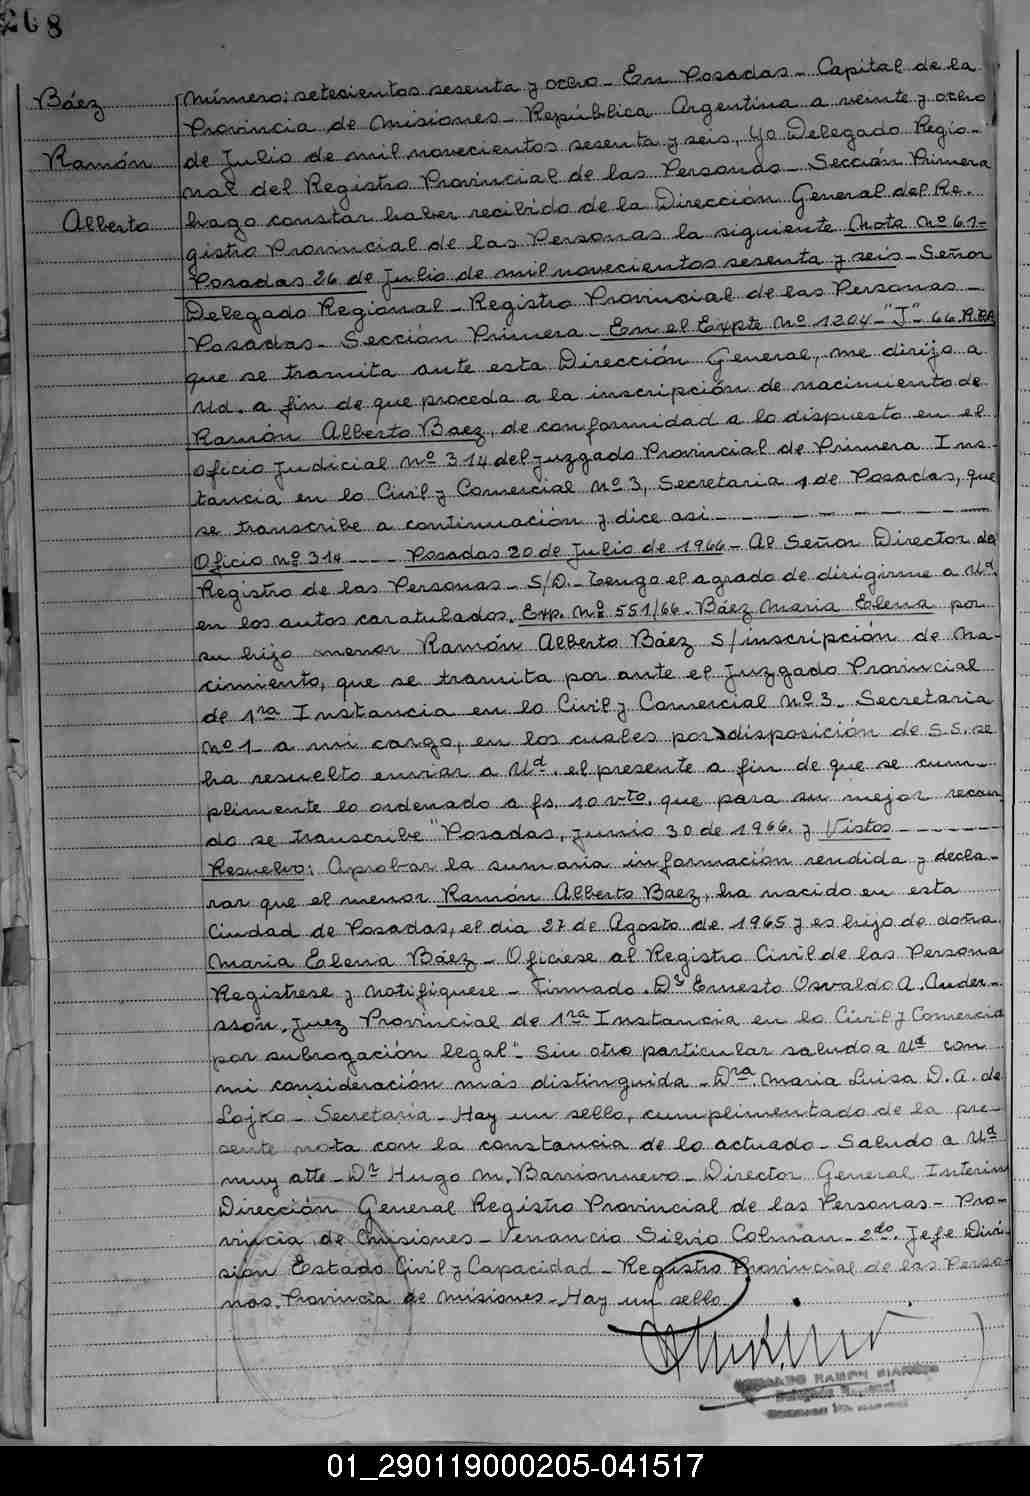 268
Báez
Ramón
Alberto
Número: setecientos sesenta y ocho - En Posadas - Capital de la
Provincia de Misiones - República Argentina a veinte y ocho
de Julio de mil novecientos sesenta y seis, Yo Delegado Regio-
nal del Registro Provincial de las Personas - Sección Primera
hago constar haber recibido de la Dirección General del Re-
gistro Provincial de las Personas la siguiente Nota Nº 61-
Posadas 26 de Julio de mil novecientos sesenta y seis - Señor
Delegado Regional - Registro Provincial de las Personas -
Posadas - Sección Primera - En el Expte Nº 1204-"J"-66.R.P.P.
que se tramita ante esta Dirección General, me dirijo a
Ud. a fin de que proceda a la inscripción de nacimiento de
Ramón Alberto Baez, de conformidad a lo dispuesto en el
Oficio Judicial Nº 314 del Juzgado Provincial de Primera Ins-
tancia en lo Civil y Comercial Nº 3, Secretaria 1 de Posadas, que
se transcribe a continuación y dice asi - - - - - - - -
Oficio nº 314 - - - Posadas 20 de Julio de 1966 - Al Señor Director del
Registro de las Personas - S/D. - Tengo el agrado de dirigirme a Ud.
en los autos caratulados, Exp. Nº 551/66. Báez Maria Elena por
su hijo menor Ramón Alberto Báez S/inscripción de na-
cimiento, que se tramita por ante el Juzgado Provincial
de 1ra Instancia en lo Civil y Comercial Nº 3. Secretaria
Nº 1 - a mi cargo, en los cuales por disposición de S.S. se
ha resuelto enviar a Ud. el presente a fin de que se cum-
plimente lo ordenado a fs. 10 vto. que para su mejor recau-
do se transcribe "Posadas, junio 30 de 1966. y Vistos - - - - -
Resuelvo: Aprobar la sumaria información rendida y decla-
rar que el menor Ramón Alberto Báez, ha nacido en esta
Ciudad de Posadas, el dia 27 de Agosto de 1965 y es hijo de doña
Maria Elena Báez - Oficiese al Registro Civil de las Persona
Registrese y Notifíquese - Firmado. Dr Ernesto Osvaldo A. Ander-
ssón. Juez Provincial de 1ra Instancia en lo Civil y Comercia
por subrogación legal". Sin otro particular saludo a Ud con
mi consideración más distinguida - Dra. Maria Luisa D. A. de
Lojko - Secretaria - Hay un sello, cumplimentado de la pre-
sente nota con la constancia de lo actuado - Saludo a Ud
muy atte - Dr Hugo M. Barrionuevo - Director General Interin
Dirección General Registro Provincial de las Personas - Pro-
vincia de Misiones - Venancio Silvio Colman - 2do. Jefe Divi
sión Estado Civil y Capacidad - Registro Provincial de las Perso-
nas. Provincia de Misiones - Hay un sello.
RAMON
Delegado Regional
01_290119000205-041517